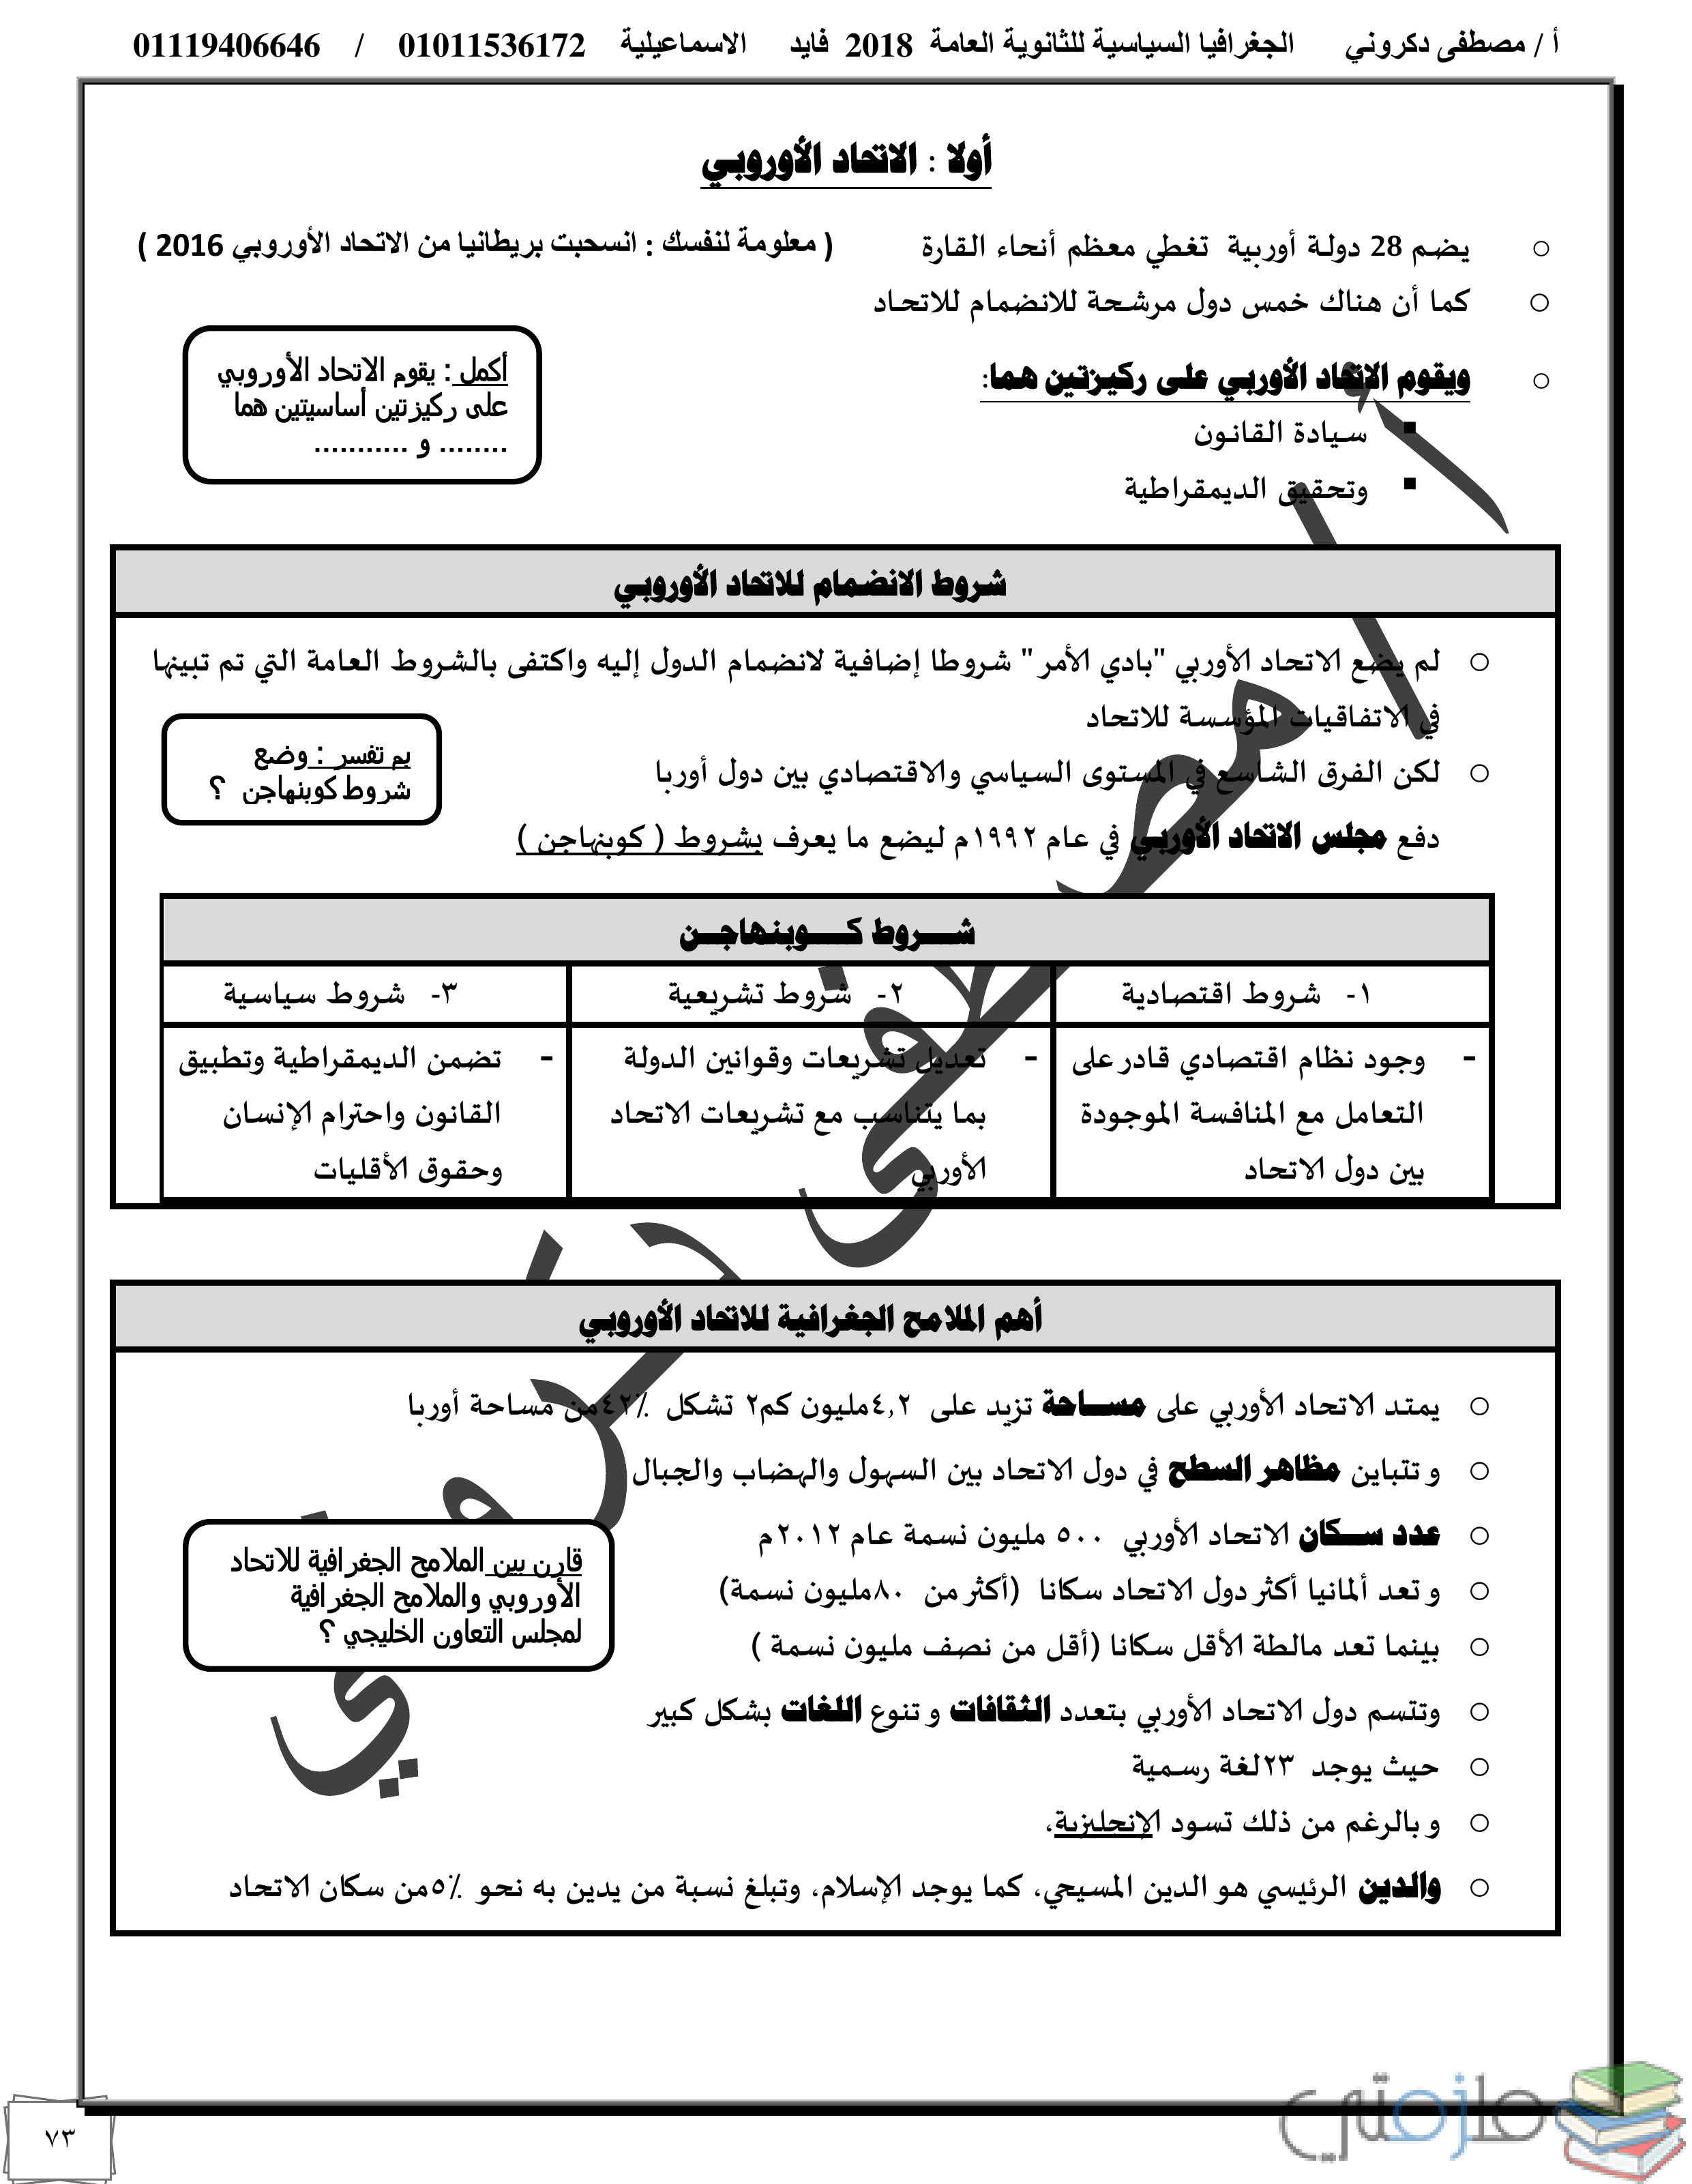 أ / مصطفى دكروني الجغرافيا السياسية للثانوية العامة 2018 فايد الاسماعيلية 01011536172 / 01119406646
أولا : الاتحاد الأوروبي
يضم 28 دولة أوربية تغطي معظم أنحاء القارة ( معلومة لنفسك : انسحبت بريطانيا من الاتحاد الأوروبي 2016 )
كما أن هناك خمس دول مرشحة للانضمام للاتحاد
ويقوم الاتحاد الأوربي على ركيزتين هما:
سيادة القانون
وتحقيق الديمقراطية
أكمل : يقوم الاتحاد الأوروبي
على ركيزتين أساسيتين هما
........ و ...........
شروط الانضمام للاتحاد الأوروبي
لم يضع الاتحاد الأوربي "بادي الأمر" شروطا إضافية لانضمام الدول إليه واكتفى بالشروط العامة التي تم تبينها
في الاتفاقيات المؤسسة للاتحاد
لكن الفرق الشاسع في المستوى السياسي والاقتصادي بين دول أوربا
دفع مجلس الاتحاد الأوربي في عام ١٩٩٢م ليضع ما يعرف بشروط ( كوبنهاجن )
بم تفسر : وضع
شروط كوبنهاجن ؟
شـــروط كـــوبنـهاجــن
١- شروط اقتصادية
٢- شروط تشريعية
٣- شروط سياسية
- وجود نظام اقتصادي قادر على
التعامل مع المنافسة الموجودة
بين دول الاتحاد
- تعديل تشريعات وقوانين الدولة
بما يتناسب مع تشريعات الاتحاد
الأوربي
- تضمن الديمقراطية وتطبيق
القانون واحترام الإنسان
وحقوق الأقليات
أهم الملامح الجغرافية للاتحاد الأوروبي
يمتد الاتحاد الأوربي على مســاحة تزيد على ٤,٢مليون كم٢ تشكل ٤٢٪من مساحة أوربا
وتتباين مظاهر السطح في دول الاتحاد بين السهول والهضاب والجبال
عدد ســكان الاتحاد الأوربي ٥٠٠ مليون نسمة عام ٢٠١٢م
وتعد ألمانيا أكثر دول الاتحاد سكانا (أكثر من ٨٠مليون نسمة)
بينما تعد مالطة الأقل سكانا (أقل من نصف مليون نسمة )
قارن بين الملامح الجغرافية للاتحاد
الأوروبي والملامح الجغرافية
لمجلس التعاون الخليجي ؟
وتتسم دول الاتحاد الأوربي بتعدد الثقافات وتنوع اللغات بشكل كبير
حيث يوجد ٢٣لغة رسمية
وبالرغم من ذلك تسود الإنجليزية،
والدين الرئيسي هو الدين المسيحي، كما يوجد الإسلام، وتبلغ نسبة من يدين به نحو ٥٪من سكان الاتحاد
أ / مصطفى دكروني
٧٣
ملزمتي